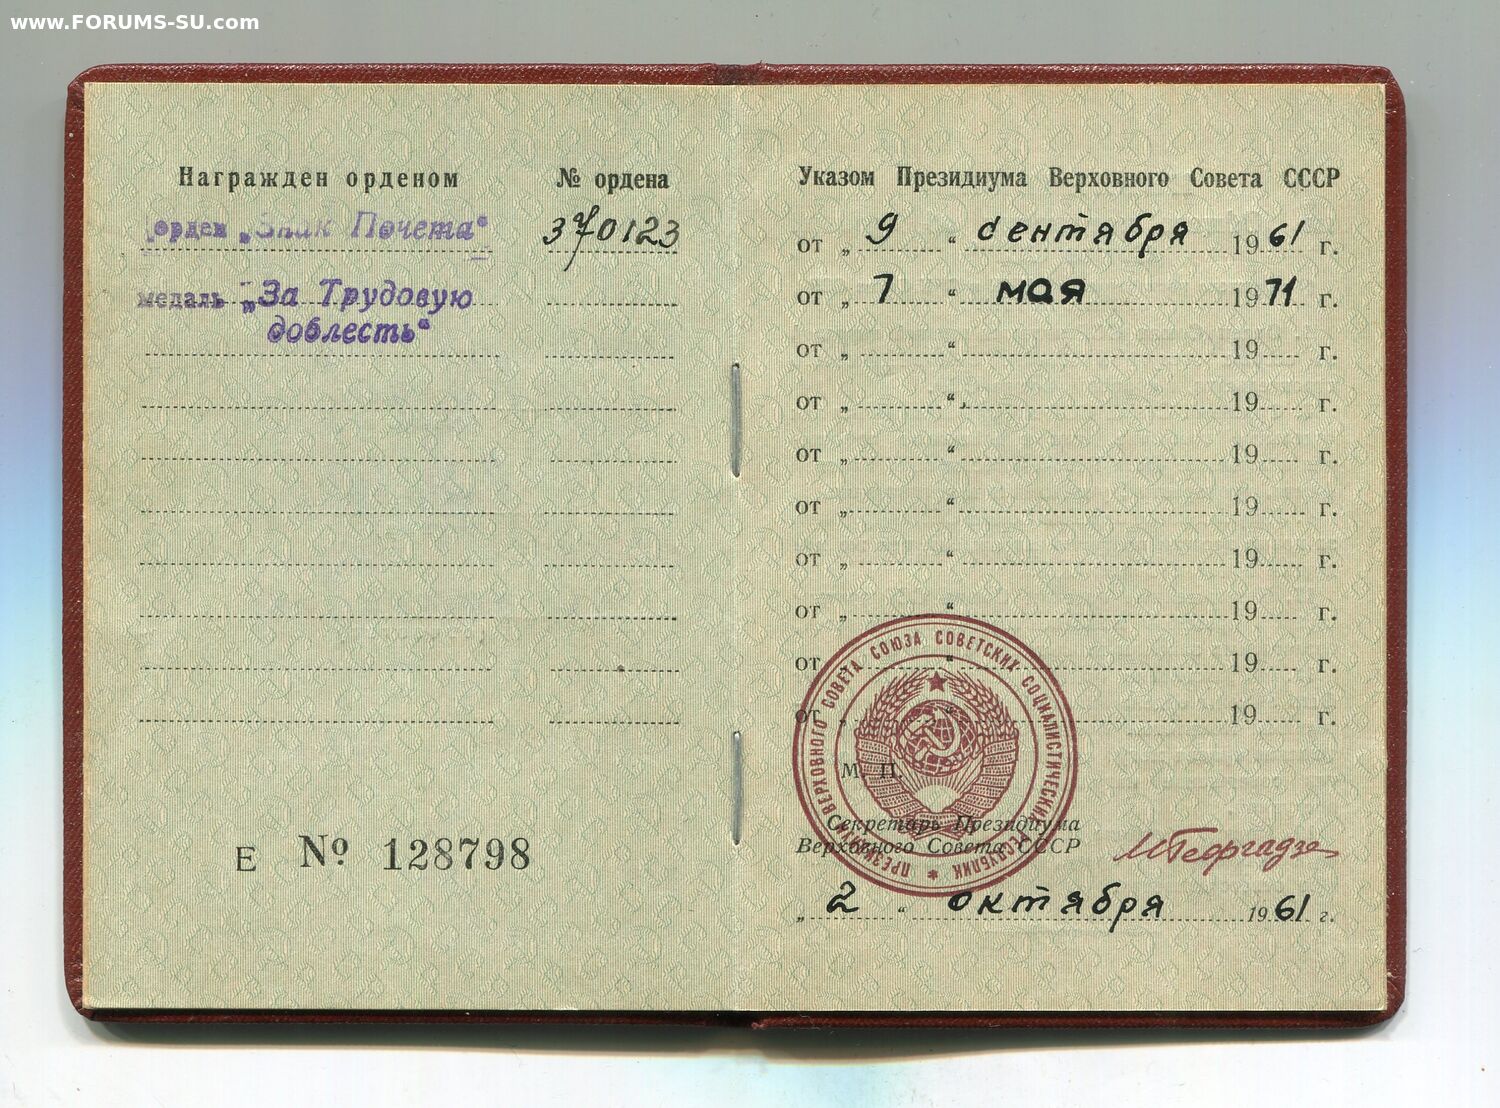 www.FORUMS-SU.com
Награжден орденом № ордена
орден „Знак Почета“ 370123
медаль „За Трудовую
доблесть“
Е № 128798
Указом Президиума Верховного Совета СССР
от „ 9 “ сентября 1961 г.
от „ 7 “ мая 1971 г.
от „ “ 19 г.
от „ “ 19 г.
от „ “ 19 г.
от „ “ 19 г.
от „ “ 19 г.
от „ “ 19 г.
от „ “ 19 г.
от „ “ 19 г.
ПРЕЗИДИУМ ВЕРХОВНОГО СОВЕТА СОЮЗА СОВЕТСКИХ СОЦИАЛИСТИЧЕСКИХ РЕСПУБЛИК
М. П.
Секретарь Президиума
Верховного Совета СССР МГеоргадзе
„ 2 “ октября 1961 г.